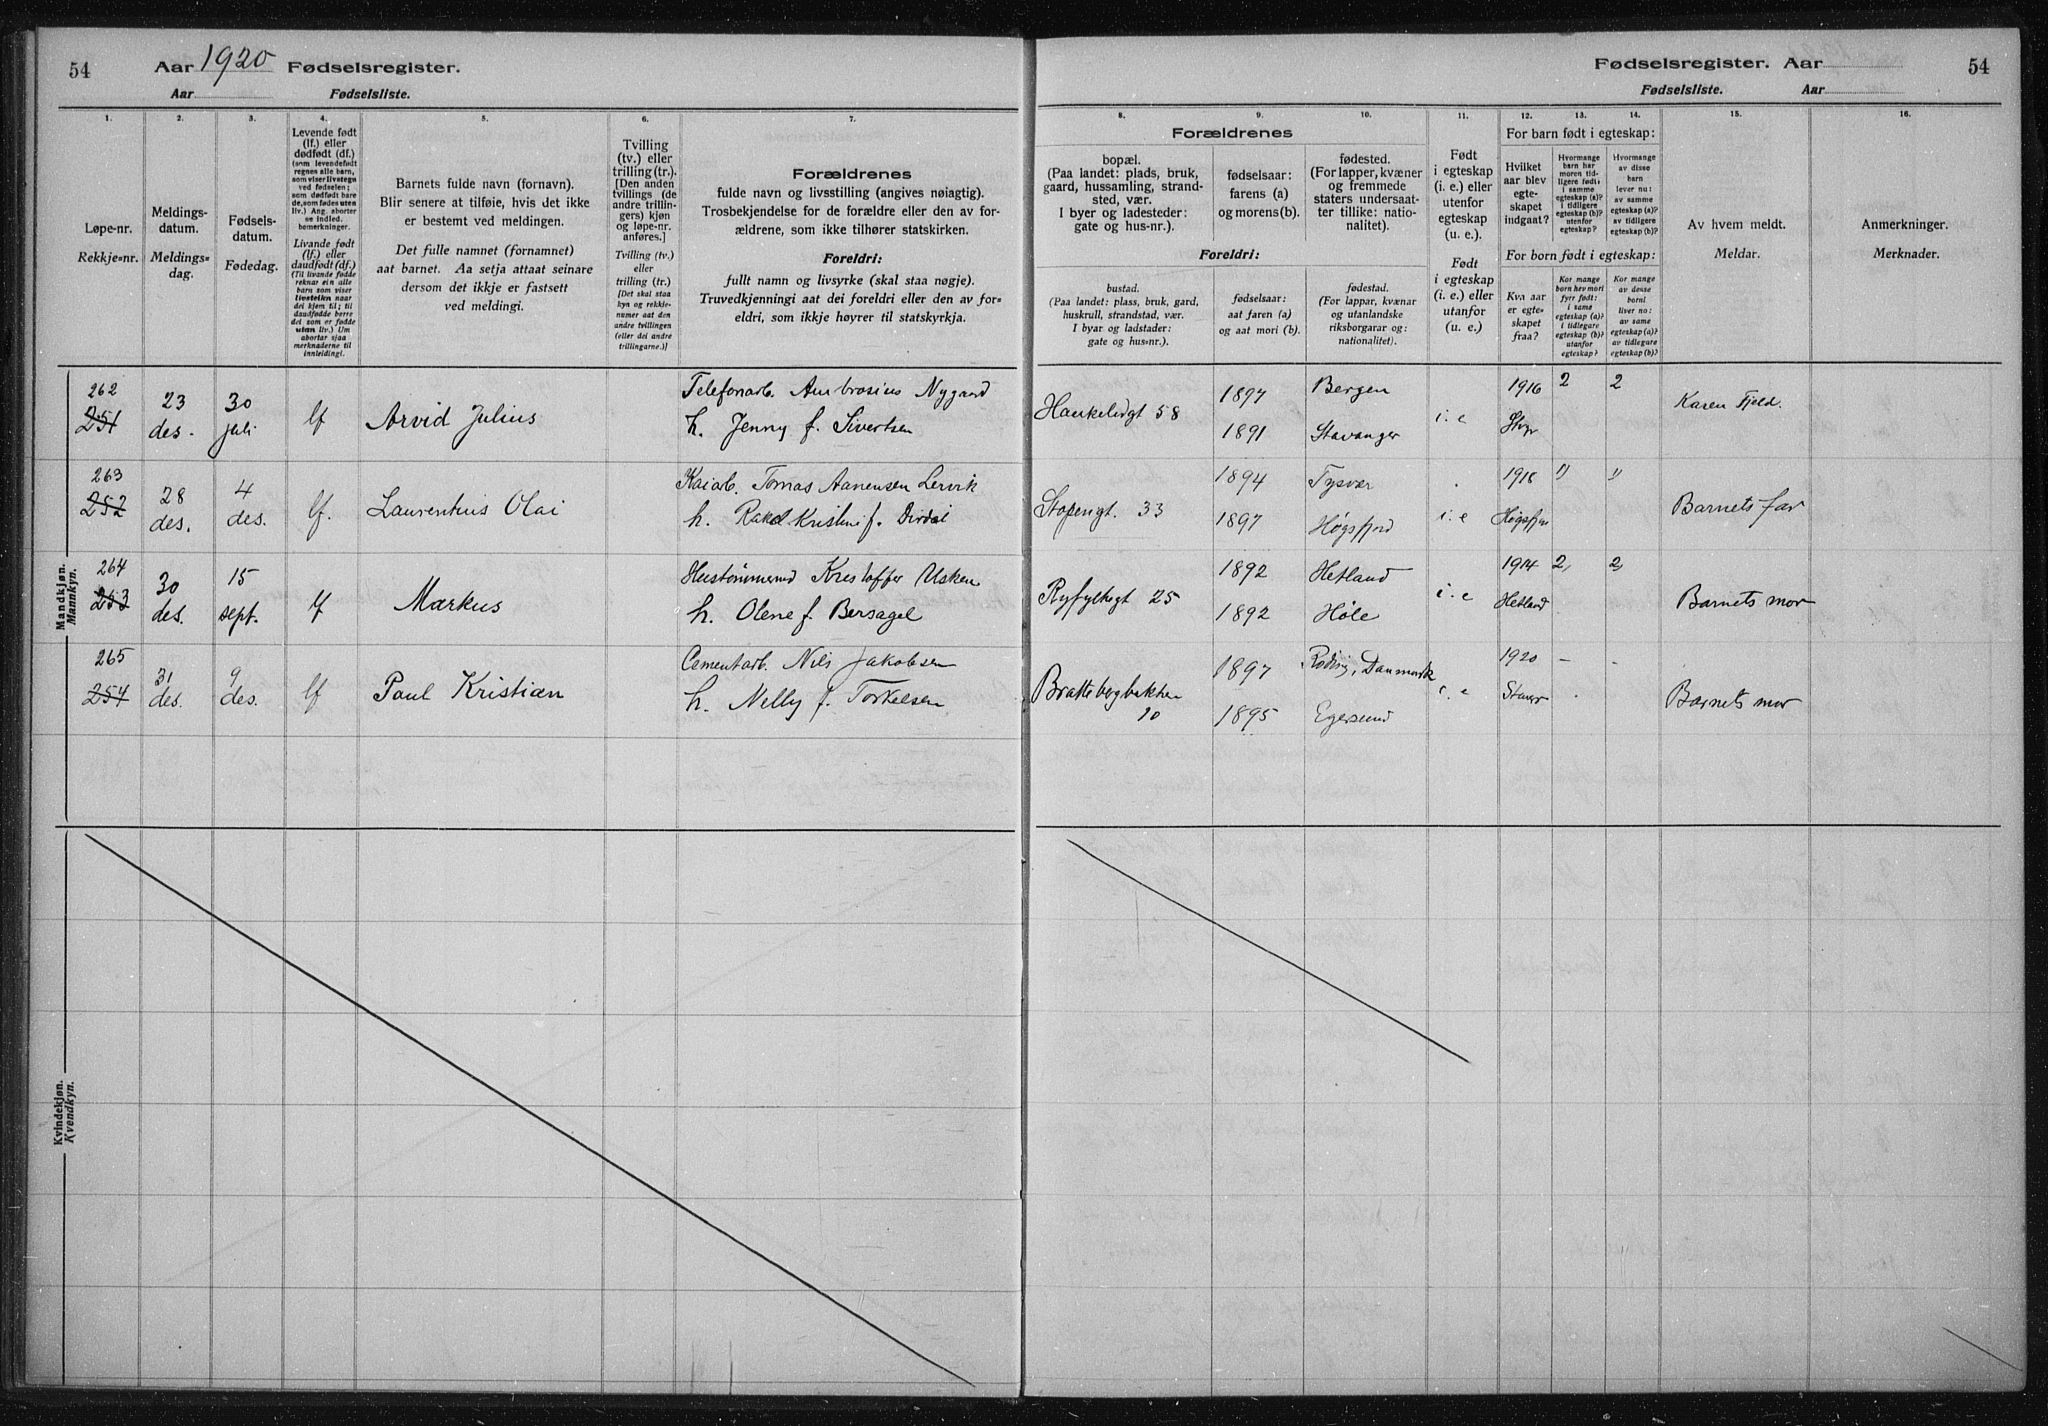 54 Aar 1920 Fødselsregister.
Aar Fødselsliste.
1. 2. 3. 4. 5. 6. 7.
Løpe-nr.
Rekkje=nr.
Meldings-
datum.
Meldings=
dag.
Fødsels-
datum.
Fødedag.
Levende født
(lf.) eller
dødfødt (df.)
(som levendefødt
regnes alle barn,
som viser livstegn
ved fødselen;
som dødfødt bare
de, som fødes uten
liv.) Ang. aborter
se indled.
bemerkninger.
Livande født
(lf.) eller
daudfødt (df.)
(Til livande fødde
reknar ein alle
barn som viser
livsteikn naar
dei kjem til; til
daudfødde berre
dei som er fødde
utan liv.) Um
abortar sjaa
merknaderne til
innleidingi.
Barnets fulde navn (fornavn).
Blir senere at tilføie, hvis det ikke
er bestemt ved meldingen.
Det fulle namnet (fornamnet)
aat barnet. Aa setja attaat seinare
dersom det ikkje er fastsett
ved meldingi.
Tvilling
(tv.) eller
trilling (tr.).
[Den anden
tvillings (de
andre trillin-
gers) kjøn
og løpe-nr.
anføres.]
Tvilling (tv.)
eller
trilling (tr.)
[Det skal staa
kyn og rekkje-
numer aat den
andre tvillingen
(eller dei andre
trillingarne.)]
Forældrenes
fulde navn og livsstilling (angives nøiagtig).
Trosbekjendelse for de forældre eller den av for-
ældrene, som ikke tilhører statskirken.
Foreldri:
fullt namn og livsyrke (skal staa nøgje).
Truvedkjenningi aat dei foreldri eller den av for=
eldri, som ikkje høyrer til statskyrkja.
Mandkjøn.
Mannkyn.
262
251 23 des. 30 juli lf Arvid Julius Telefonarb. Ambrosius Nygaard
h. Jenny f. Sivertsen
263
252 28 des. 4 des. lf. Laurentius Olai Kaiarb. Tomas Aanensen Lervik
h. Rakel Kristine f. Dirdal
264
253 30 des. 15 sept. lf Markus Hustømmermd Kristoffer Usken
h. Olene f. Bersagel
265
254 31 des. 9 des. lf Paul Kristian Cementarb. Nils Jakobsen
h. Nelly f. Torkelsen
Kvindekjøn.
Kvendkyn.
Fødselsregister. Aar 54
Fødselsliste. Aar
8. 9. 10. 11. 12. 13. 14. 15. 16.
Forældrenes
bopæl.
(Paa landet: plads, bruk,
gaard, hussamling, strand-
sted, vær.
I byer og ladesteder:
gate og hus-nr.).
fødselsaar:
farens (a)
og morens (b).
fødested.
(For lapper, kvæner
og fremmede
staters undersaat-
ter tillike: natio-
nalitet).
Foreldri:
bustad.
(Paa landet: plass, bruk, gard,
huskrull, strandstad, vær.
I byar og ladstader:
gate og hus=nr.).
fødselsaar:
aat faren (a)
og aat mori (b).
fødestad.
(For lappar, kvænar
og utanlandske
riksborgarar og:
nationalitet).
Født
i egteskap
(i. e.) eller
utenfor
egteskap
(u. e.).
Født
i egteskap
(i. e.) eller
utanfor
(u. e.)
For barn født i egteskap:
Hvilket
aar blev
egte-
skapet
indgaat?
Hvormange
barn har
moren tid-
ligere født:
i samme
egteskap (a)?
i tidligere
egteskap (b)?
utenfor
egteskap?
Hvormange
av disse
barn
lever nu:
av samme
egteskap (a)?
av tidligere
egteskap (b)?
For born født i egteskap:
Kva aar
er egte-
skapet
fraa?
Kor mange
born hev mori
fyrr født:
i same
egteskap (a)?
i tidlegare
egteskap (b)?
utanfor
egteskap?
Kor mange
av desse
born
liver no:
av same
egteskap (a)?
av tidlegare
egteskap (b)?
Av hvem meldt.
Meldar.
Anmerkninger.
Merknader.
Haukeligt 58 1897 Bergen i. e 1916 2 2 Karen Fjeld.
1891 Stavanger Stvgr
Støpergt. 33 1894 Tysvær i. e 1918 " " Barnets far
1897 Høgsfjord Høgsfjor
Ryfylkegt 25 1892 Hetland i. e 1914 2, 2, Barnets mor
1892 Høle Hetland
Brattebergbakken 10 1897 Rødvig, Danmark i. e 1920 - - Barnets mor
1895 Egersund Stavgr